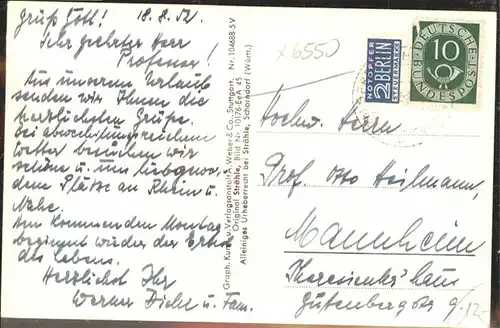 Grüß Gott! 18.8.52.
Sehr geehrter Herr
Professor!
Aus unserem Urlaub
senden wir Ihnen die
herzlichsten Grüße.
Bei abwechslungsreichem
Wetter besuchen wir
schöne u. uns
Plätze an Rhein u.
Nahe.
Am kommenden Montag
beginnt wieder der Ernst
des Lebens.
Herzlichst Ihr
Werner u. Fam.
Graph. Kunst- u. Verlagsanstalt A. Weber & Co., Stuttgart. Nr. 104688-5V
Original Strähle, Bild Nr. 10176-EeA 45
Alleiniges Urheberrecht bei Strähle, Schorndorf (Württ.)
X6550
NOTOPFER
2 BERLIN
STEUERMARKE
DEUTSCHE
10
BUNDESPOST
Hochw. Herrn
Prof. Otto Heilmann,
Mannheim
Theresienkr'haus
Gutenbergstr.
9/12-